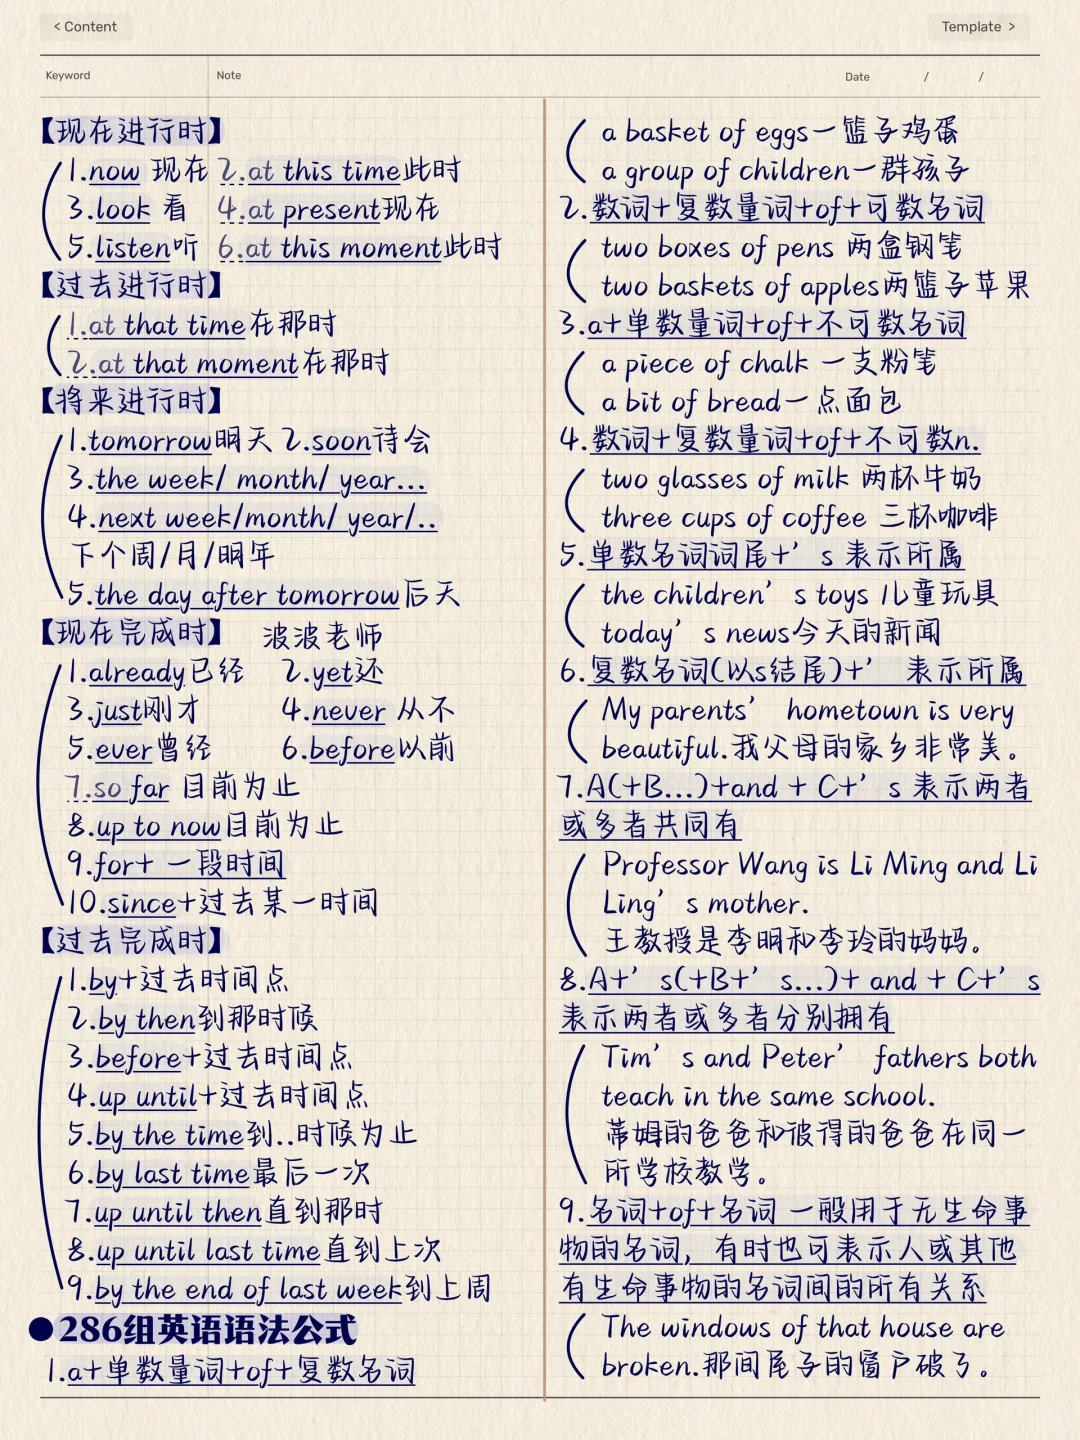 < Content
Template >
Keyword
Note
Date / /
【现在进行时】
1.now 现在 2.at this time此时
3.look 看 4.at present现在
5.listen听 6.at this moment此时
【过去进行时】
1.at that time在那时
2.at that moment在那时
【将来进行时】
1.tomorrow明天 2.soon待会
3.the week/ month/ year...
4.next week/month/ year/..
下个周/月/明年
5.the day after tomorrow后天
【现在完成时】 波波老师
1.already已经 2.yet还
3.just刚才 4.never 从不
5.ever曾经 6.before以前
7.so far 目前为止
8.up to now目前为止
9.for+ 一段时间
10.since+过去某一时间
【过去完成时】
1.by+过去时间点
2.by then到那时候
3.before+过去时间点
4.up until+过去时间点
5.by the time到..时候为止
6.by last time最后一次
7.up until then直到那时
8.up until last time直到上次
9.by the end of last week到上周
●286组英语语法公式
1.a+单数量词+of+复数名词
a basket of eggs一篮子鸡蛋
a group of children一群孩子
2.数词+复数量词+of+可数名词
two boxes of pens 两盒钢笔
two baskets of apples两篮子苹果
3.a+单数量词+of+不可数名词
a piece of chalk 一支粉笔
a bit of bread一点面包
4.数词+复数量词+of+不可数n.
two glasses of milk 两杯牛奶
three cups of coffee 三杯咖啡
5.单数名词词尾+’s 表示所属
the children’s toys 儿童玩具
today’s news今天的新闻
6.复数名词(以s结尾)+’ 表示所属
My parents’ hometown is very
beautiful.我父母的家乡非常美。
7.A(+B...)+and + C+’s 表示两者
或多者共同有
Professor Wang is Li Ming and Li
Ling’s mother.
王教授是李明和李玲的妈妈。
8.A+’s(+B+’s...)+ and + C+’s
表示两者或多者分别拥有
Tim’s and Peter’ fathers both
teach in the same school.
蒂姆的爸爸和彼得的爸爸在同一
所学校教学。
9.名词+of+名词 一般用于无生命事
物的名词，有时也可表示人或其他
有生命事物的名词间的所有关系
The windows of that house are
broken.那间屋子的窗户破了。